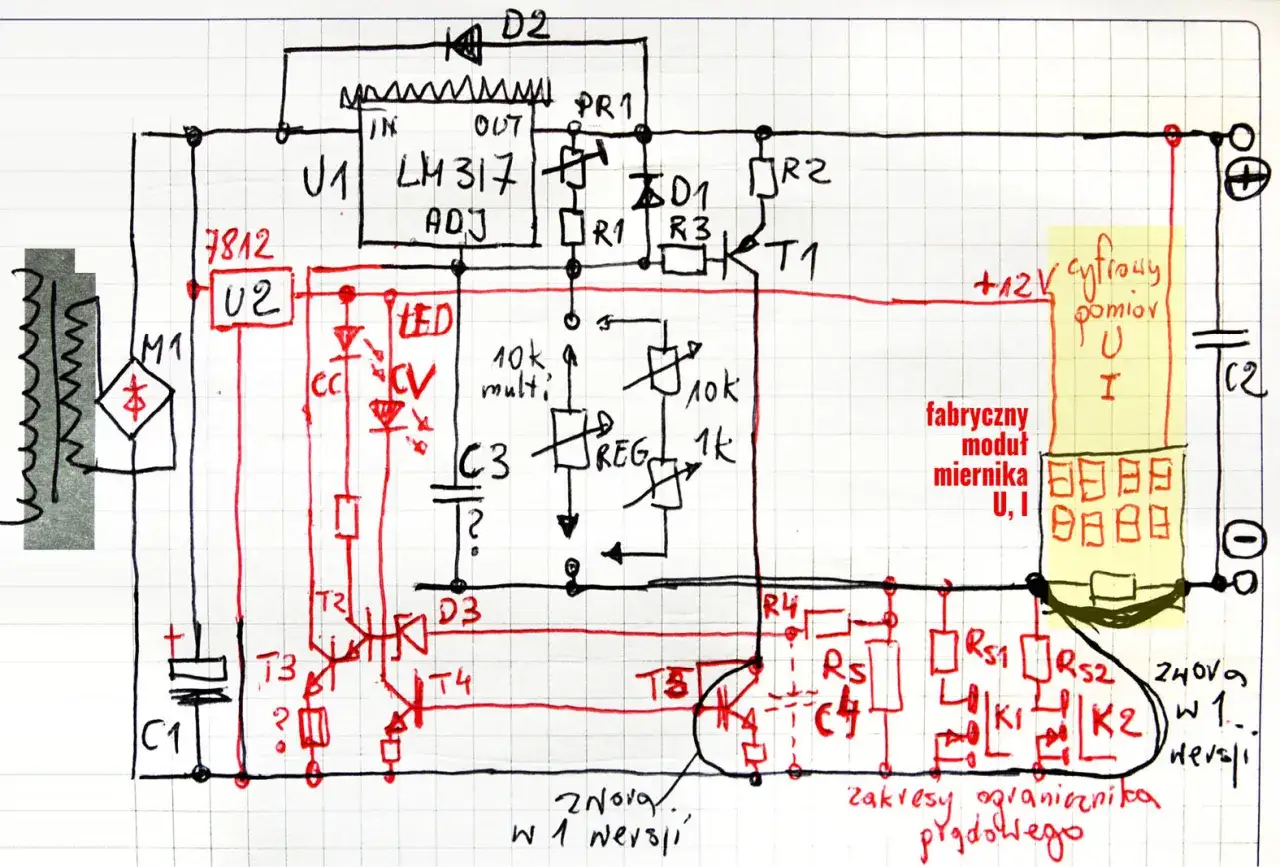 D2
PR1
IN
OUT
U1
LM317
ADJ
D1
R1
R2
R3
T1
7812
U2
LED
CC
CV
+12V
cyfrowy
pomiar
U
I
M1
10k
multi
10k
REG
1k
C3
?
C2
fabryczny
moduł
miernika
U, I
T2
D3
R4
T3
T4
T5
RS
RS1
RS2
C4
K1
K2
?
+
C1
zwora
w 1
wersji
zwora
w 1 wersji
zakresy ogranicznika
prądowego